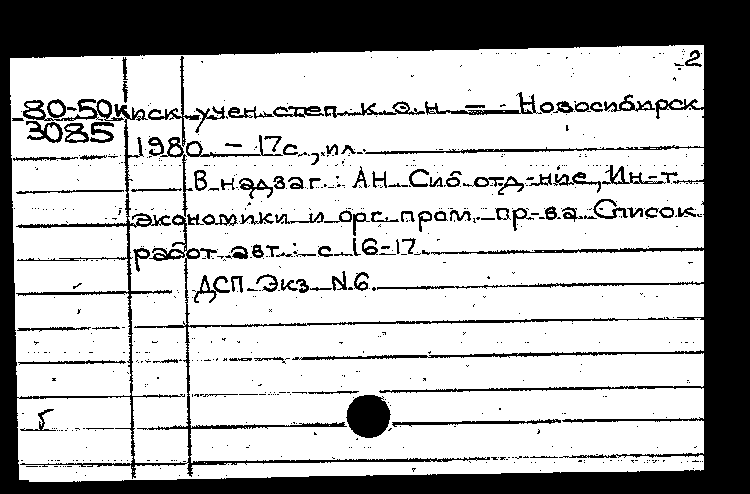 2
80-50к иск учен. степ. к. э. н. – Новосибирск
3085 1980. – 17с., ил.
В надзаг.: АН. Сиб. отд-ние, Ин-т
экономики и орг. пром. пр-ва Список
работ авт.: с. 16-17.
ДСП Экз. N.6.